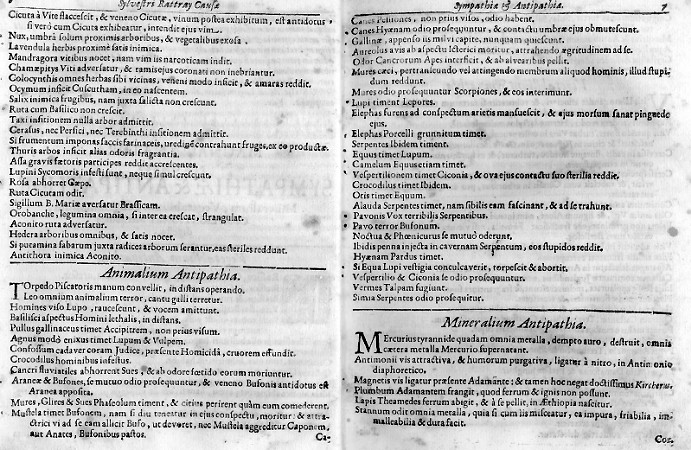 Sylvestri Rattray Causæ
Cicuta à Vite flaccescit, & veneno Cicutæ, vinum postea exhibitum, est antidotus
si verò cum Cicuta exhibeatur, intendit ejus vim.
Nux, umbrâ solum proximis arboribus, & vegetalibus exosa.
Lavendula herbis proximè satis inimica.
Mandragora vitibus nocet, nam vim iis narcoticam indit.
Chamæpitys Viti adversatur, & ramis ejus coronati non inebriantur.
Colocynthis omnes herbas sibi vicinas, veneni modo inficit, & amaras reddit.
Ocymum inficit Cuscutham, in eo nascentem.
Salix inimica frugibus, nam juxta salicta non crescunt.
Ruta cum Basilico non crescit.
Taxi insitionem nulla arbor admittit.
Cerasus, nec Persici, nec Terebinthi insitionem admittit.
Si frumentum imponas saccis farinaceis, uredinē contrahunt fruges, ex eo productæ.
Thuris arbos inficit alia odoris fragrantia.
Assa gravis fætoris participes reddit accrescentes.
Lupini Sycomoris infesti sunt, neque simul crescunt.
Rosa abhorret Cæpo.
Ruta Cicutam odit.
Sigillum B. Mariæ aversatur Brassicam.
Orobanche, legumina omnia, si inter ea crescat, strangulat.
Aconito ruta adversatur.
Hedera arboribus omnibus, & satis nocet.
Si putamina fabarum juxta radices arborum serantur, eas steriles reddunt.
Antithora inimica Aconito.
Animalium Antipathia.
Torpedo Piscatoris manum convellit, in distans operando.
Leo omnium animalium terror, cantu galli terretur.
Homines viso Lupo, raucescunt, & vocem amittunt.
Basilisci aspectus Homini lethalis, in distans.
Pullus gallinaceus timet Accipitrem, non prius visum.
Agnus modò enixus timet Lupum & Vulpem.
Confossum cadaver coram Judice, præsente Homicidâ, cruorem effundit.
Crocodilus hominibus infestus.
Cancri fluviatiles abhorrent Sues, & ab odore fœtido eorum moriuntur.
Araneæ & Bufones, se mutuo odio prosequuntur, & veneno Bufonis antidotus est
Aranea apposita.
Mures, Glires & Sues Phaseolum timent, & citius perirent quàm eum comederent.
Mustela timet Bufonem, nam si diu teneatur in ejus conspectu, moritur: & attra-
ctrici vi ad se eam allicit Bufo, ut devoret, nec Mustela aggreditur Caponem,
aut Anates, Bufonibus pastos.
Ca-
Sympathiæ & Antipathiæ. 7
Canes non prius visos, odio habent.
Canes Hyænam odio prosequuntur, & contactu umbræ ejus obmutescunt.
Gallinæ, appenso iis milvi capite, nunquam quiescunt.
Aureolus avis ab aspectu Icterici moritur, attrahendo ægritudinem ad se.
Odor Cancrorum Apes interficit, & ab alvearibus pellit.
Mures cæci, pertranseundo vel attingendo membrum aliquod hominis, illud stupi-
dum reddunt.
Mures odio prosequuntur Scorpiones, & eos interimunt.
Lupi timent Lepores.
Elephas furens ad conspectum arietis mansuescit, & ejus morsum sanat pinguedo
ejus.
Elephas Porcelli grunnitum timet.
Serpentes Ibidem timent.
Equus timet Lupum.
Camelum Equus etiam timet.
Vespertilionem timet Ciconia, & ova ejus contactu suo sterilia reddit.
Crocodilus timet Ibidem.
Otis timet Equum.
Alauda Serpentes timet, nam sibilo eam fascinant, & ad se trahunt.
Pavonis Vox terribilis Serpentibus.
Pavo terror Bufonum.
Noctua & Phœnicurus se mutuò oderunt.
Ibidis penna injecta in cavernam Serpentum, eos stupidos reddit.
Hyænam Pardus timet.
Si Equa Lupi vestigia conculcaverit, torpescit & abortit.
Vespertilio & Ciconia se odio prosequuntur.
Vermes Talpam fugiunt.
Simia Serpentes odio prosequitur.
Mineralium Antipathia.
Mercurius tyrannide quadam omnia metalla, dempto auro, destruit, omnia
cætera metalla Mercurio supernatant.
Antimonii vis attractiva, & humorum purgativa, ligatur à nitro, in Antimonio
diaphoretico.
Magnetis vis ligatur præsente Adamante: & tamen hoc negat doctissimus Kircherus.
Plumbum Adamantem frangit, quod ferrum & ignis non possunt.
Lapis Theamedes ferrum abigit, & à se pellit, in Æthiopia nascitur.
Stannum odit omnia metalla, quia si cum iis misceatur, ea impura, friabilia, im-
malleabilia & dura facit.
Cos.